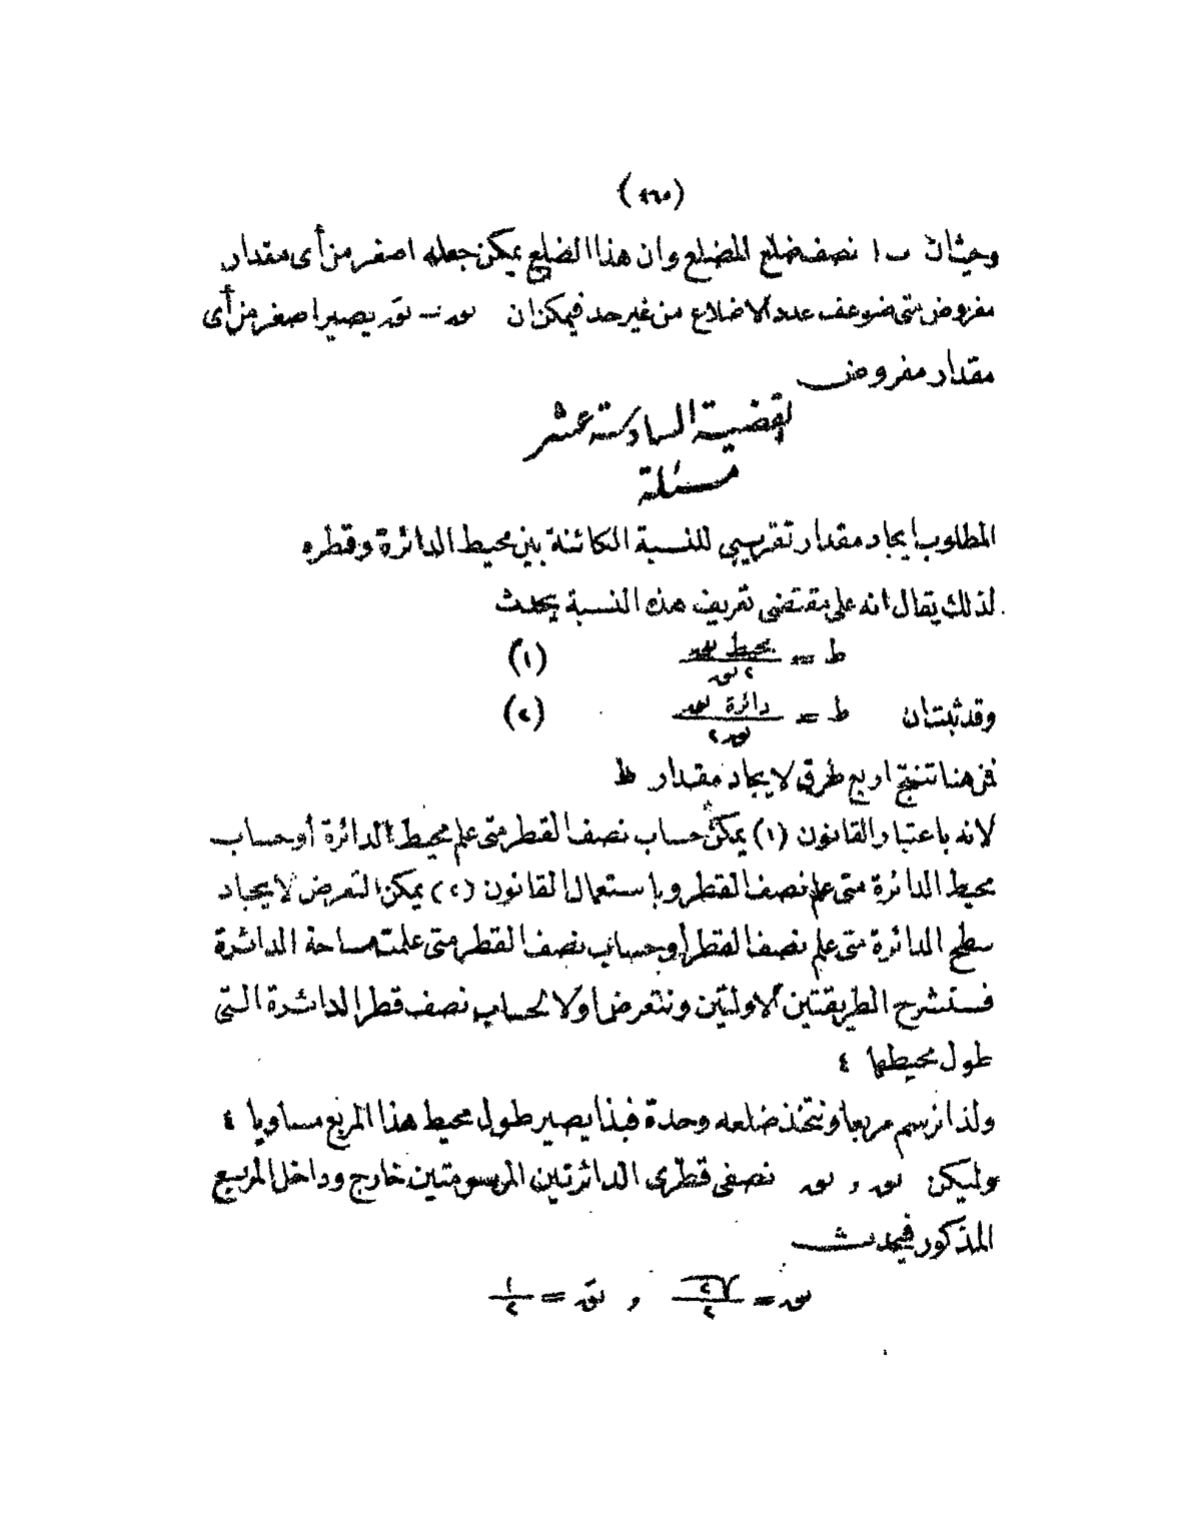 (٢٦٥)
وحيث ان ب ا نصف ضلع المضلع وان هذا الضلع يمكن جعله اصغر من أى مقدار
مفروض متى ضوعف عدد الاضلاع من غير حد فيمكن ان نق - نقَ يصير اصغر من أى
مقدار مفروض
القضية السادسة عشر
مسئلة
المطلوب ايجاد مقدار تقريبى للنسبة الكائنة بين محيط الدائرة وقطره
لذلك يقال انه على مقتضى تعريف هذه النسبة يحدث
ط = محيط نق / ٢ نق (١)
وقد ثبت ان ط = دائرة نق / نق٢ (٢)
فمن هنا تنتج اربع طرق لايجاد مقدار ط
لانه باعتبار القانون (١) يمكن حساب نصف القطر متى علم محيط الدائرة أو حساب
محيط الدائرة متى علم نصف القطر وباستعمال القانون (٢) يمكن التعرض لايجاد
سطح الدائرة متى علم نصف القطر أو حساب نصف القطر متى علمت مساحة الدائرة
فستشرح الطريقتين الاوليتين ونتعرض اولا لحساب نصف قطر الدائرة التى
طول محيطها ٤
ولذا نرسم مربعا ونتخذ ضلعه وحدة فبذا يصير طول محيط هذا المربع مساويا ٤
وليكن نق و نق نصفى قطرى الدائرتين المرسومتين خارج وداخل المربع
المذكور فيحدث
نق = √٢ / ٢ و نقَ = ١ / ٢